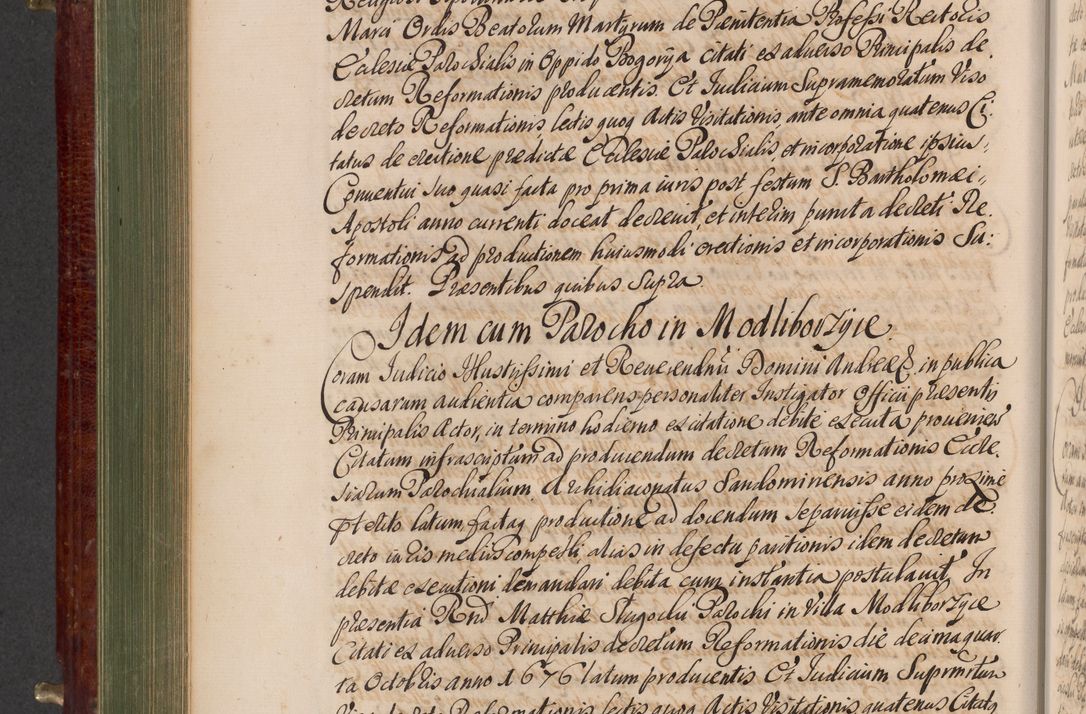 Mara Ordis Beatorum Martyrum de Pænitentia Professi Rectoris
Ecclesiæ Parochialis in Oppido Bogorya citati ex adverso Principalis de
cretum Reformationis producentis. Et Iudicium Supramemoratum Viso
decreto Reformationis, lectis quoq Actis Visitationis, ante omnia quatenus Ci:
tatus de erectione prædictæ Ecclesiæ Parochialis, et incorporatione ipsius,
Conventui suo quasi facta pro prima iuris post festum S. Bartholomæi,
Apostoli anno currenti doceat decrevit, et interim puncta decreti Re.
formationis ad productionem huiusmodi erectionis et incorporationis Su:
spendit. Præsentibus quibus supra.
Idem cum Parocho in Modliborzyce
Coram Iudicio Illustrissimi et Reverendmi Domini Andreæ &. in publica
causarum audientia comparens personaliter Instigator Officii præsentis
Principalis Actor, in termino hodierno ex citatione debite executa provenien
Citatum infrascriptum ad producendum decretum Reformationis Eccle.
siarum Parochialium Archidiaconatus Sandomirensis anno proxime
pterito latum, factaq productione ad docendum se paruisse eidem de
creto iuris mediis compelli alias in defectu paritionis idem decretum
debitæ executioni demandari debita cum instantia postulavit. In
præsentia Rnd Matthiæ Parochi in Villa Modliborzyce
Citati ex adverso Principalis decretum Reformationis die decima quar
ta Octobris anno 1676 latum producentis Et Iudicium Suprmrtum
Viso decreto Reformationis lectis quoq Actis Visitationis quatenus Citatq